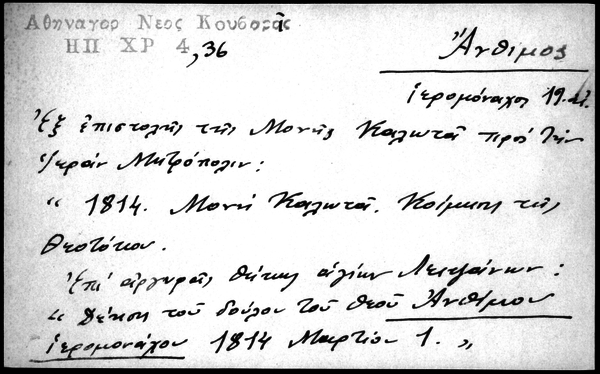 Αθηναγορ Νεος Κουβαρᾶς
ΗΠ ΧΡ 4, 36
Ἄνθιμος
ἱερομόναχος 19 αἰ.
Ἐξ ἐπιστολῆς τῆς Μονῆς Καλωτᾶ πρός τήν
Ἱεράν Μητρόπολιν:
“ 1814. Μονή Καλωτᾶ. Κοίμησις τῆς
Θεοτόκου.
Ἐπί ἀργυρᾶς θήκης ἁγίων Λειψάνων:
“ Δέησις τοῦ δούλου τοῦ θεοῦ Ἀνθίμου
ἱερομονάχου 1814 Μαρτίου 1. „